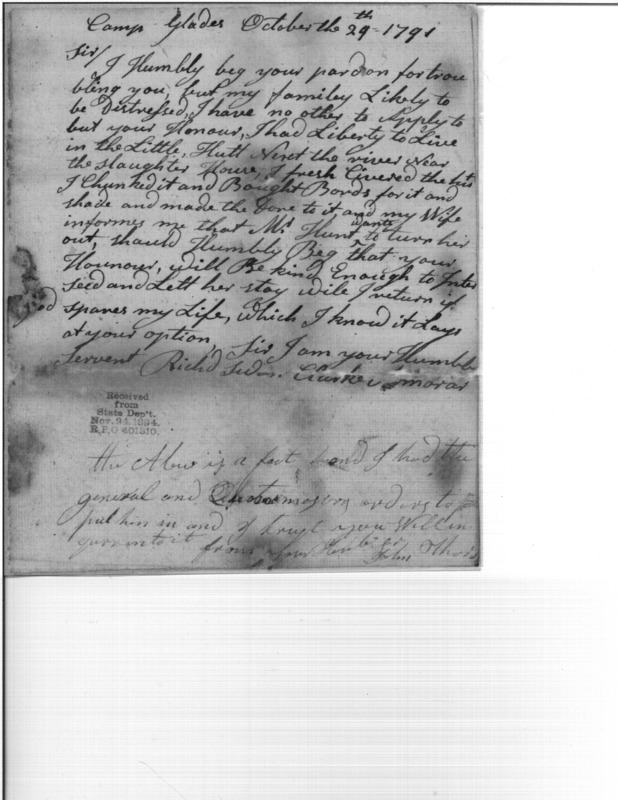 Camp Glades October the 29th 1791
Sir/
I Humbly beg your pardon for trou
bling you, but my familey Likely to
be Distressed, I have no other to Apply to
but your Honour, I had Liberty to Live
in the Little, Hutt Next the river Near
the Slaughter House, I fresh Civered the hut
I Chunked it and Bought Bords for it and
shade and made the Dore to it and my Wife
informes me that Mr Hunt wants to turn her
out, should Humbly Beg that your
Hounour, will Be kind Enough to Inter
seed and Lett her stay wile I return if
god spares my Life, which I know it Lays
at your option, Sir I am your Humble
Servent Richd
Received
from
State Dep't.
Nov. 24, 1894.
R.P.O 401310.
The Abov is a fact, and I had the
general and Quotormasers orders to
put him in and I trust you Will in
from your
John